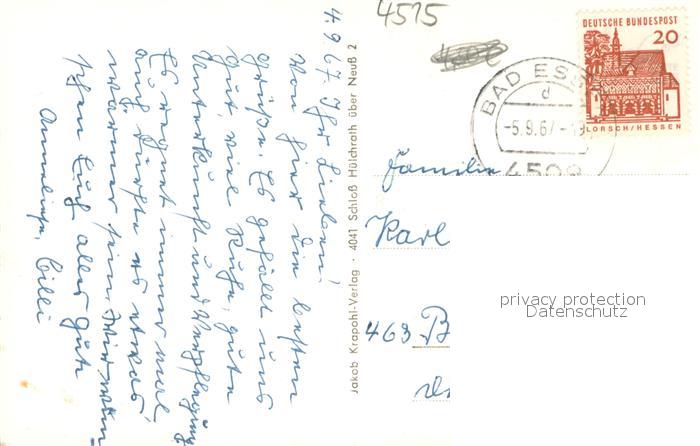 4.9.67. Ihr Lieben!
Von hier die besten
Grüße. Es gefällt uns
gut, viel Ruhe, gute
Unterkunft und Verpflegung
Es regnet immer mal,
auch dürfte es etwas
wärmer sein. Wir wün
schen Euch alles Gute
Anneliese, Cilli
Jakob Krapohl-Verlag · 4041 Schloß Hülchrath über Neuß 2
4515
DEUTSCHE BUNDESPOST
20
LORSCH/HESSEN
BAD ESS
d
-5.9.67-
4508
Familie
Karl
463 B
privacy protection
Datenschutz